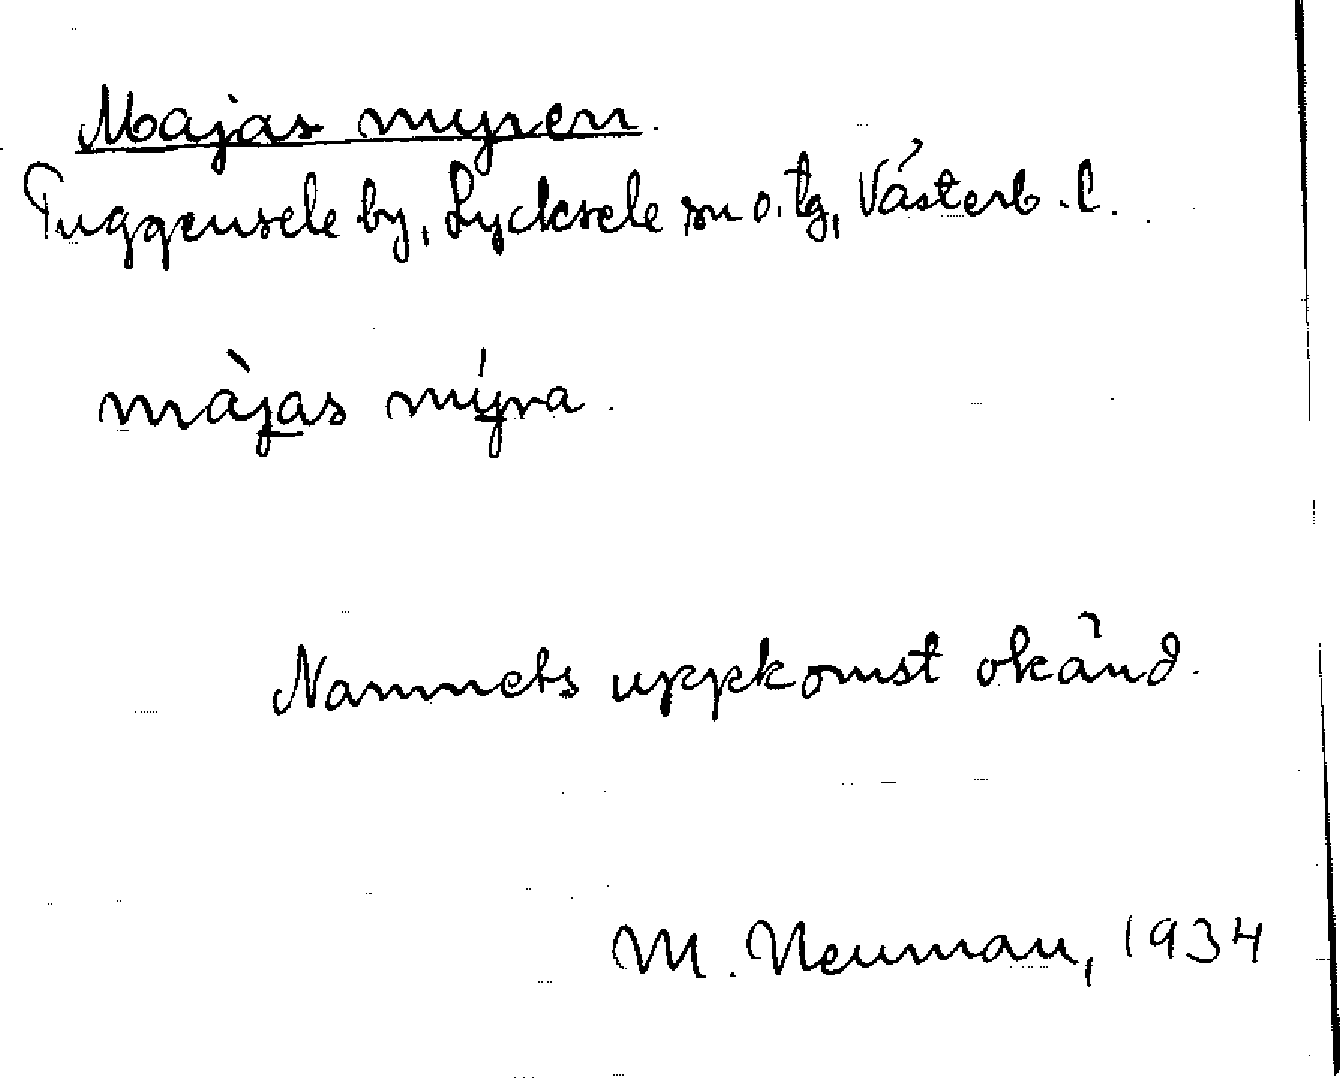 Majas myren.
Tuggensele by, Lycksele sn o. tg, Västerb. l.
màjas mýra.
Namnets uppkomst okänd.
M. Neuman, 1934